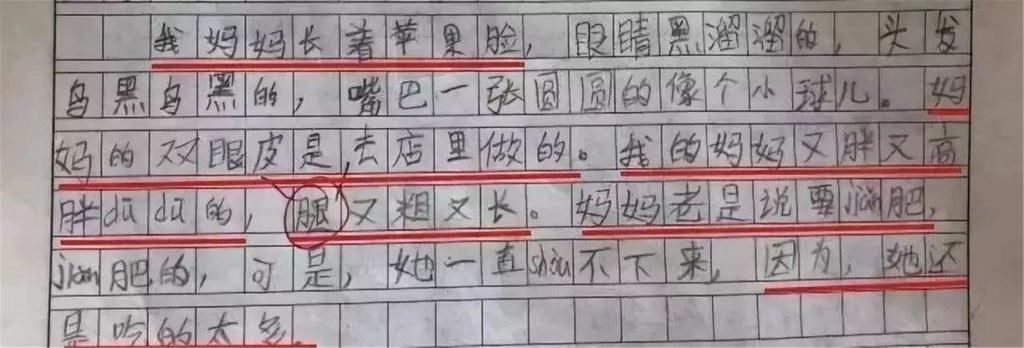 我妈妈长着苹果脸,眼睛黑溜溜的,头发
乌黑乌黑的,嘴巴一张圆圆的像个小球儿。妈
妈的双眼皮是去店里做的。我的妈妈又胖又高
胖dū dū的,腿又粗又长。妈妈老是说要jiǎn肥,
jiǎn肥的,可是,她一直shòu不下来,因为,她还
是吃的太多。